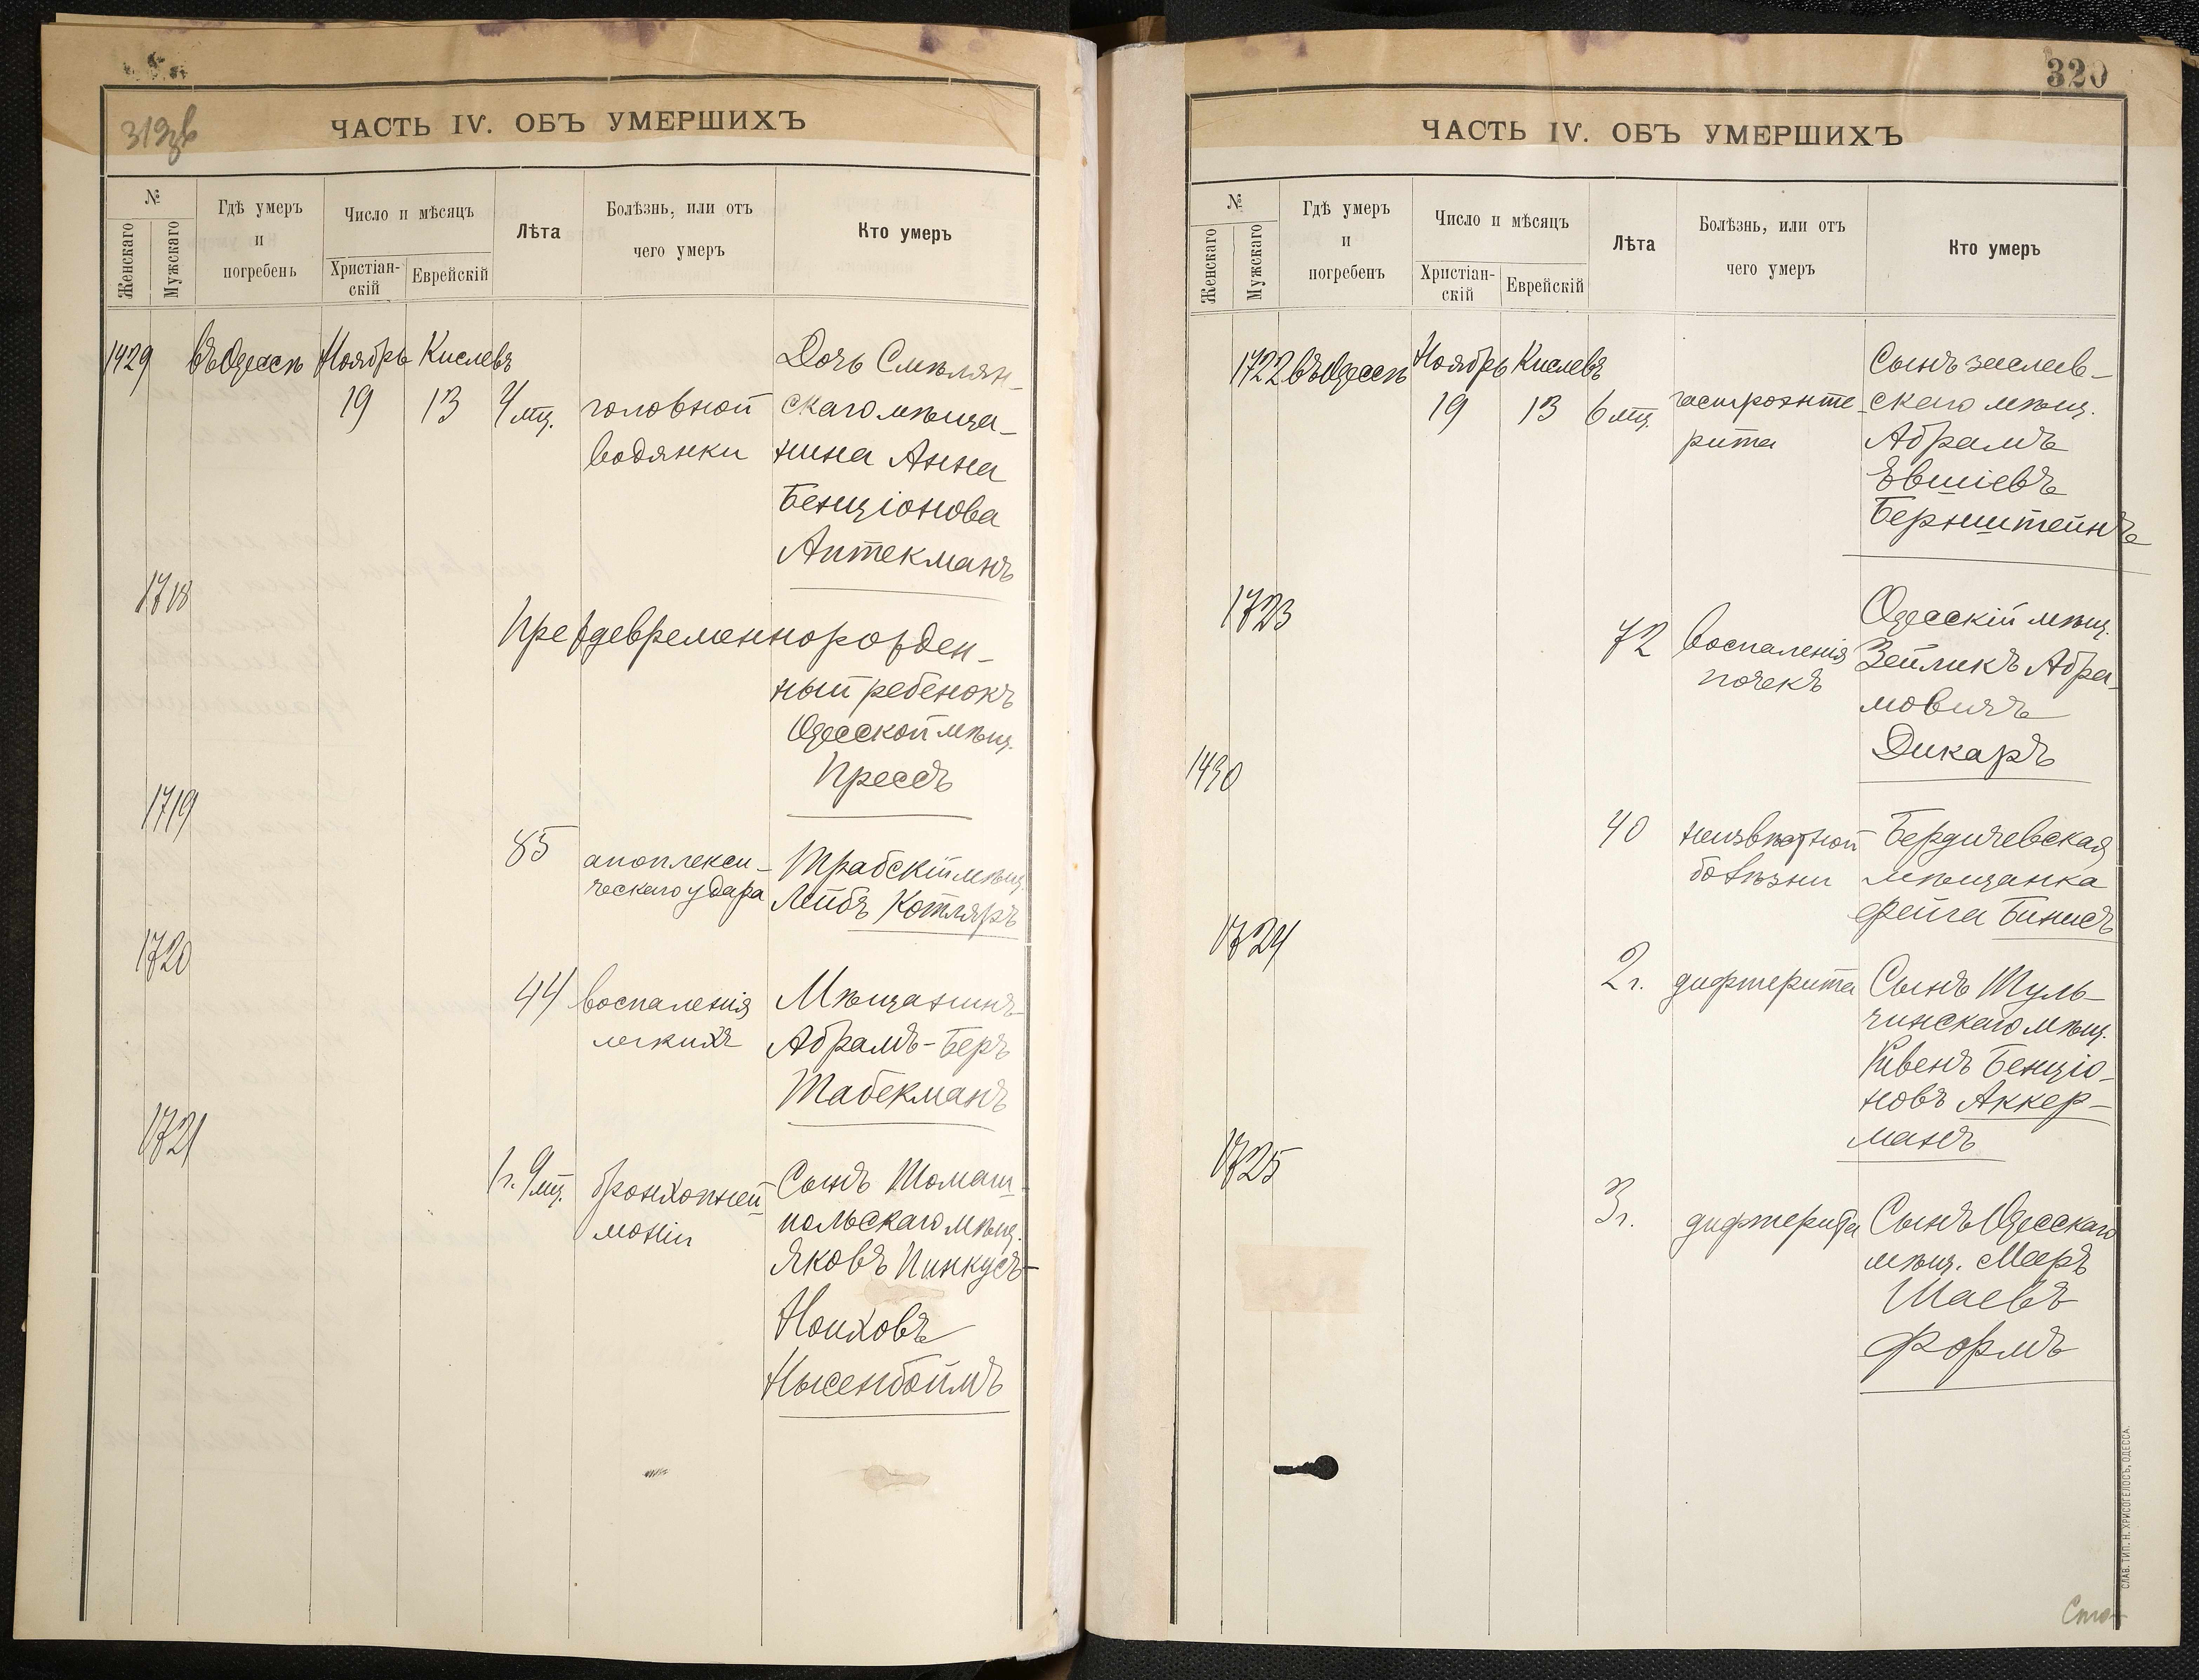 319зв
ЧАСТЬ IV. ОБЪ УМЕРШИХЪ
№
Женскаго
Мужскаго
Гдѣ умеръ
и
погребенъ
Число и мѣсяцъ
Христіан-
скій
Еврейскій
Лѣта
Болѣзнь, или отъ
чего умеръ
Кто умеръ
1429 въ Одессѣ Ноябрь Кислевъ
19 13 4 мц. головной
водянки
Дочь Смѣлян-
скаго мѣща-
нина Анна
Бенціонова
Аптекманъ
1718
Преждевременнорожден-
ный ребенокъ
Одесской мѣщ.
Прессъ
1719
85 апоплекси-
ческаго удара
Грабскій мѣщ.
Лейбъ Котляръ
1720
44 воспаленія
легкихъ
Мѣщанинъ
Абрамъ-Беръ
Табекманъ
1721
1 г. 9 мц. бронхопней-
моніи
Сынъ Томаш-
польскаго мѣщ.
Яковъ Пинкусъ-
Ноиховъ
Нысенбоймъ
320
ЧАСТЬ IV. ОБЪ УМЕРШИХЪ
№
Женскаго
Мужскаго
Гдѣ умеръ
и
погребенъ
Число и мѣсяцъ
Христіан-
скій
Еврейскій
Лѣта
Болѣзнь, или отъ
чего умеръ
Кто умеръ
1722 въ Одессѣ Ноябрь Кислевъ
19 13 6 мц. гастроэнте-
рита
Сынъ
скаго мѣщ.
Абрамъ
Евшіевъ
Бернштейнъ
1723
72 воспаленія
почекъ
Одесскій мѣщ.
Зейликъ Абра-
мовичъ
Дикаръ
1430
40 неизвѣстной
болѣзни
Бердичевская
мѣщанка
Фейга Бинисъ
1724
2 г. дифтерита
Сынъ Туль-
чинскаго мѣщ.
Кивенъ Бенціо-
новъ Аккер-
манъ
1725
3 г. дифтерита
Сынъ Одесскаго
мѣщ. Мееръ
Шаевъ
Формъ
СЛАВ. ТИП. Н. ХРИСОГЕЛОСЪ, ОДЕССА.